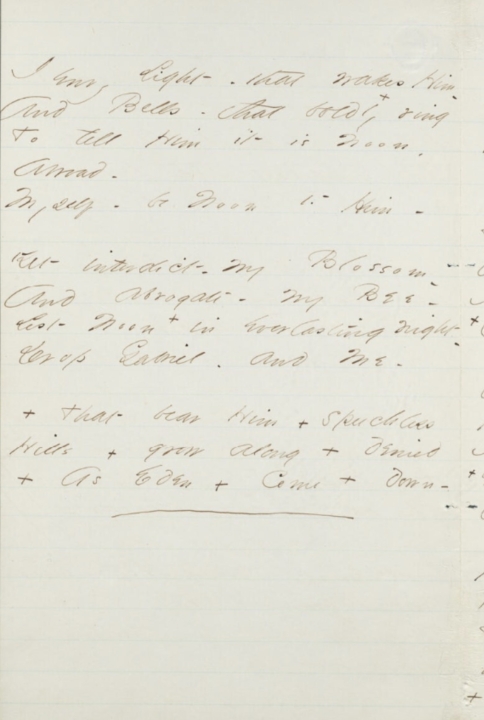 I envy Light - that wakes Him -
And Bells - that boldly + ring
To tell Him it is Noon,
Abroad -
Myself - be Noon to Him -
Yet interdict - my Blossom -
And abrogate - my Bee -
Lest Noon + in Everlasting Night -
Drop Gabriel - and Me -
+ that bear Him + Speechless
Hills + grow along + denied
+ As Eden + Come + Down -